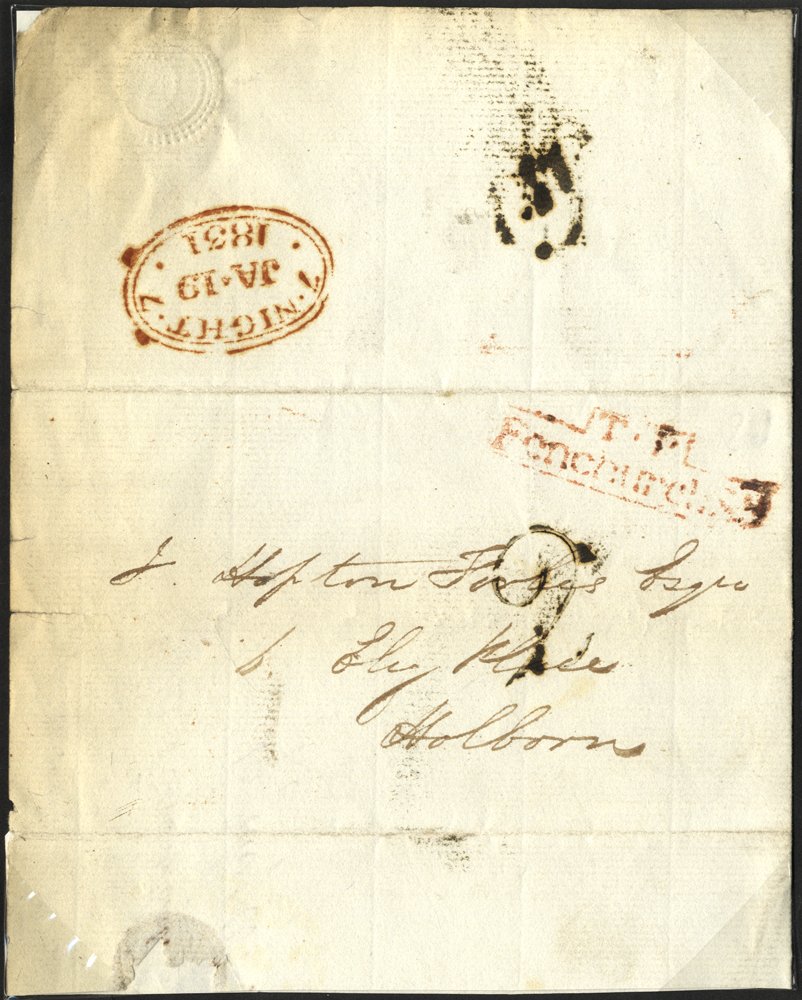 7·NIGHT·7
JA·19
1831
T.P
Fenchurch St
J. Hopton Forbes Esqre
6 Ely Place
Holborn